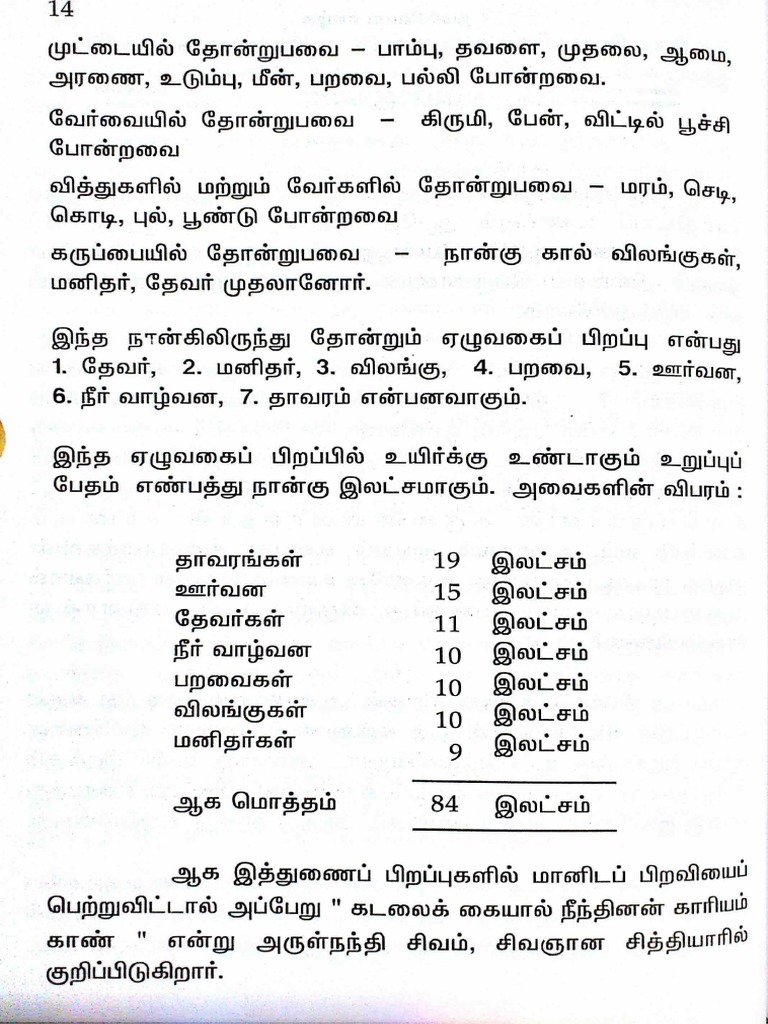 14
முட்டையில் தோன்றுபவை – பாம்பு, தவளை, முதலை, ஆமை,
அரணை, உடும்பு, மீன், பறவை, பல்லி போன்றவை.
வேர்வையில் தோன்றுபவை – கிருமி, பேன், விட்டில் பூச்சி
போன்றவை
வித்துகளில் மற்றும் வேர்களில் தோன்றுபவை – மரம், செடி,
கொடி, புல், பூண்டு போன்றவை
கருப்பையில் தோன்றுபவை – நான்கு கால் விலங்குகள்,
மனிதர், தேவர் முதலானோர்.
இந்த நான்கிலிருந்து தோன்றும் ஏழுவகைப் பிறப்பு என்பது
1. தேவர், 2. மனிதர், 3. விலங்கு, 4. பறவை, 5. ஊர்வன,
6. நீர் வாழ்வன, 7. தாவரம் என்பனவாகும்.
இந்த ஏழுவகைப் பிறப்பில் உயிர்க்கு உண்டாகும் உறுப்புப்
பேதம் எண்பத்து நான்கு இலட்சமாகும். அவைகளின் விபரம் :
தாவரங்கள் 19 இலட்சம்
ஊர்வன 15 இலட்சம்
தேவர்கள் 11 இலட்சம்
நீர் வாழ்வன 10 இலட்சம்
பறவைகள் 10 இலட்சம்
விலங்குகள் 10 இலட்சம்
மனிதர்கள் 9 இலட்சம்
ஆக மொத்தம் 84 இலட்சம்
ஆக இத்துணைப் பிறப்புகளில் மானிடப் பிறவியைப்
பெற்றுவிட்டால் அப்பேறு " கடலைக் கையால் நீந்தினன் காரியம்
காண் " என்று அருள்நந்தி சிவம், சிவஞான சித்தியாரில்
குறிப்பிடுகிறார்.